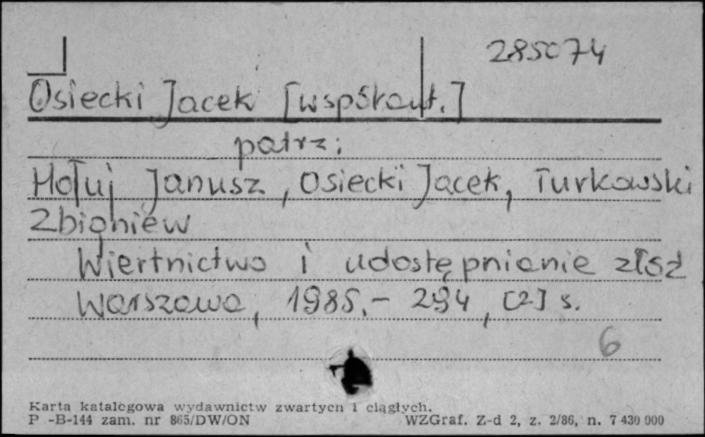 285074
Osiecki Jacek [współaut.]
patrz:
Hołuj Janusz, Osiecki Jacek, Turkowski
Zbigniew
Wiertnictwo i udostępnianie złóż
Warszawa, 1985.- 294, [2] s.
6
Karta katalogowa wydawnictw zwartych i ciągłych.
P -B-144 zam. nr 865/DW/ON WZGraf. Z-d 2, z. 2/86, n. 7 430 000